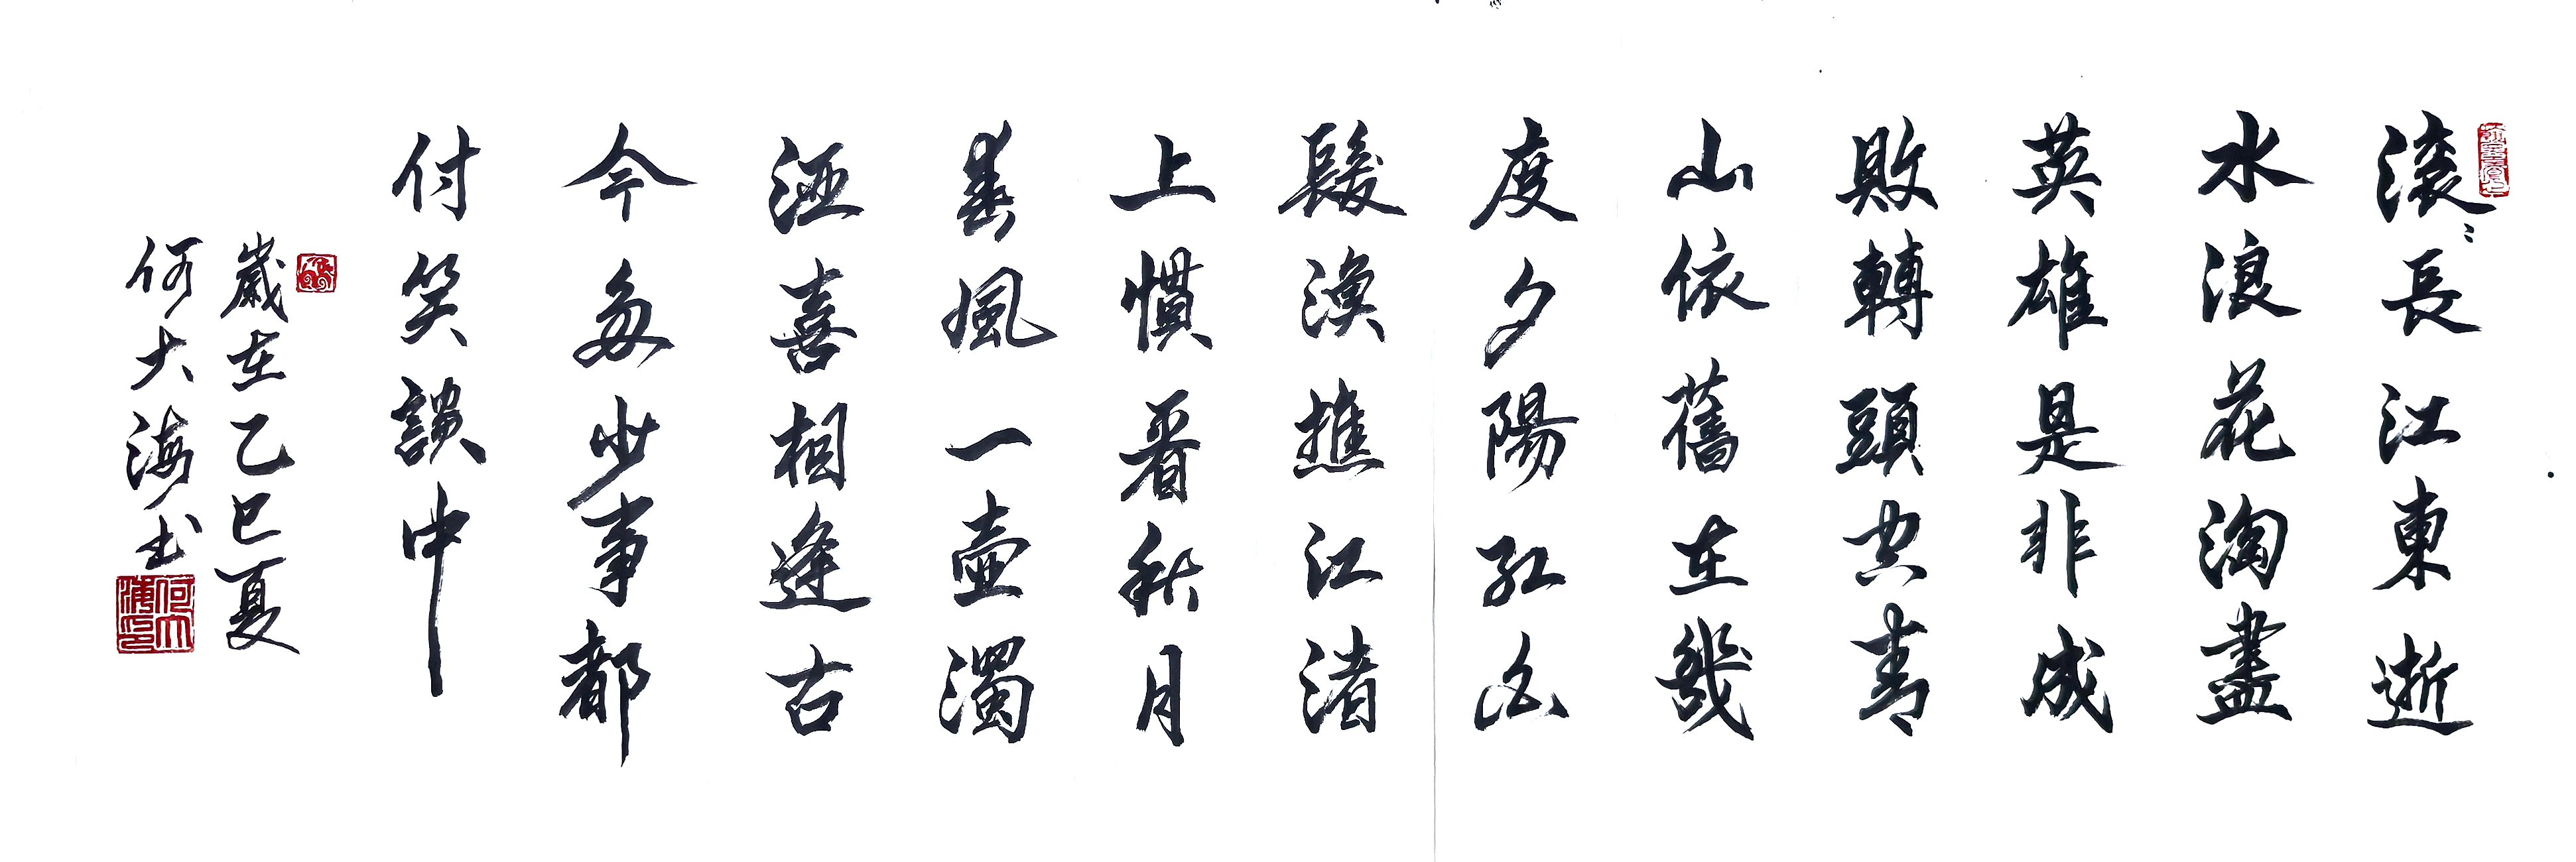 滚〻長江東逝
水浪花淘盡
英雄是非成
敗轉頭空青
山依舊在幾
度夕陽紅白
髮漁樵江渚
上慣看秋月
春風一壺濁
酒喜相逢古
今多少事都
付笑談中
歲在乙巳夏
何大海书
何大海印